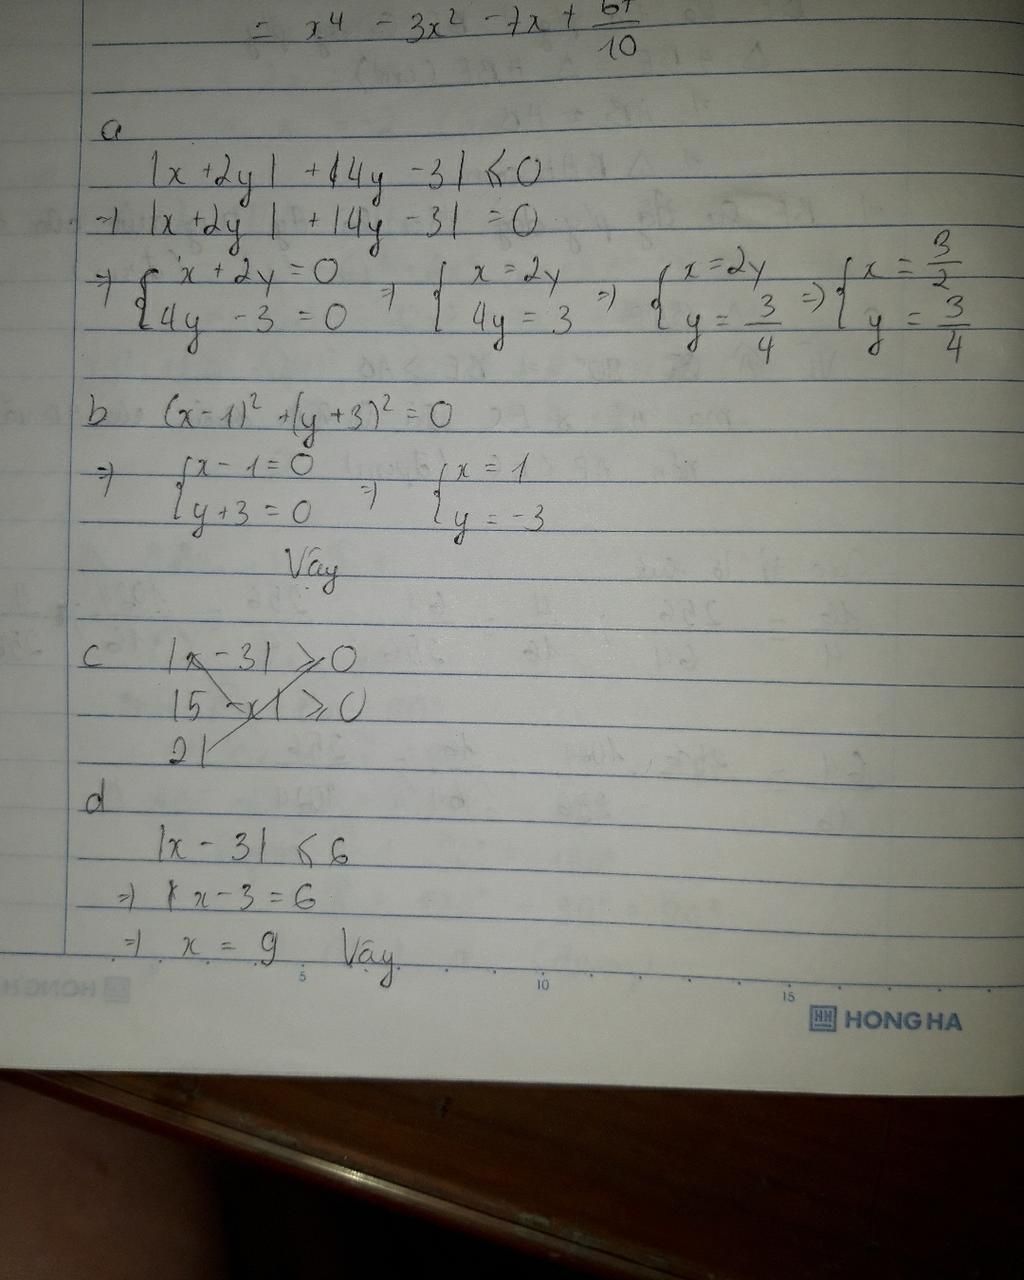 = x⁴ - 3x² - 7x + /10
a
|x + 2y| + |4y - 3| ⩽ 0
=) |x + 2y| + |4y - 3| = 0
=) { x + 2y = 0 ; 4y - 3 = 0 =) { x = 2y ; 4y = 3 =) { x = 2y ; y = 3/4 =) { x = 3/2 ; y = 3/4
b (x - 1)² + (y + 3)² = 0
=) { x - 1 = 0 ; y + 3 = 0 =) { x = 1 ; y = -3
Vây
c |x - 3| ⩾ 0
|5 - x| ⩾ 0
2|
d
|x - 3| ⩽ 6
=) x - 3 = 6
=) x = 9 Vây
5 10 15
HONG HA